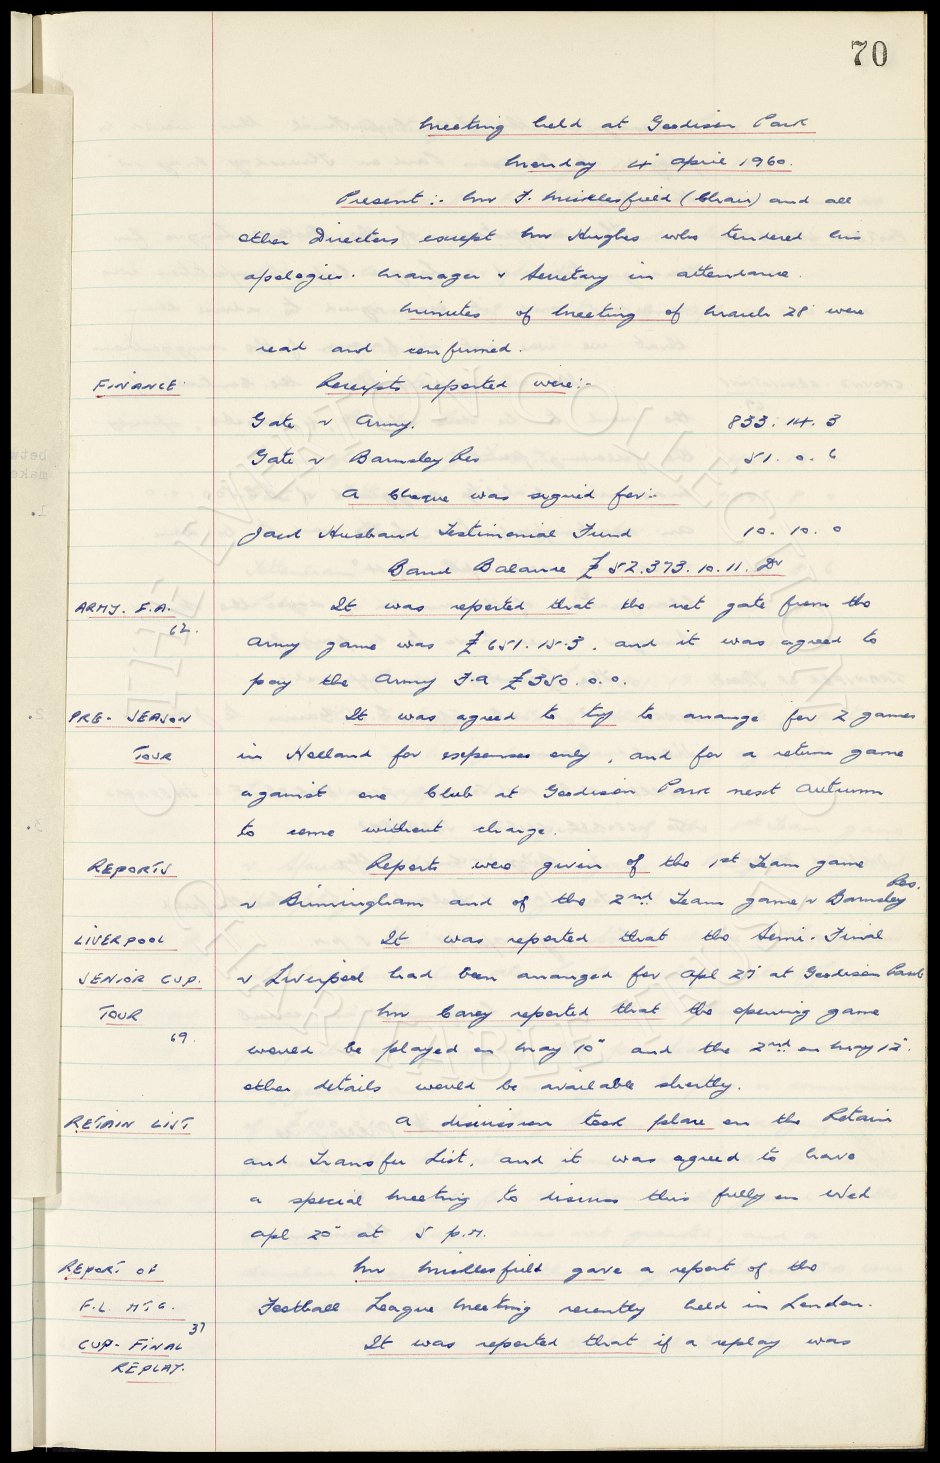 70
Meeting held at Goodison Park
Monday 4" April 1960.
Present :- Mr F. Micklesfield (Chair) and all
other Directors except Mr Hughes who tendered his
apologies. Manager & Secretary in attendance.
Minutes of Meeting of March 28" were
read and confirmed.
FINANCE. Receipts reported were:-
Gate v Army. 833. 14. 3
Gate v Barnsley Res 51. 0. 6
A Cheque was signed for:-
Jack Husband Testimonial Fund 10. 10. 0
Bank Balance £52.373.10.11. Dr
ARMY. F.A. It was reported that the net gate from the
62. Army game was £651.15.3. and it was agreed to
pay the Army F.A £350.0.0.
PRE-SEASON It was agreed to try to arrange for 2 games
TOUR in Holland for expenses only, and for a return game
against one Club at Goodison Park next Autumn
to come without charge.
REPORTS Reports were given of the 1st Team game
v Birmingham and of the 2nd Team game v Barnsley Res.
LIVERPOOL It was reported that the Semi-Final
SENIOR CUP. v Liverpool had been arranged for Apl 27" at Goodison Park
TOUR Mr Carey reported that the opening game
69. would be played on May 10" and the 2nd on May 12".
other details would be available shortly.
RETAIN LIST A discussion took place on the Retain
and Transfer List, and it was agreed to have
a special Meeting to discuss this fully on Wed
Apl 20" at 5 p.m.
REPORT OF Mr Micklesfield gave a report of the
F.L. MTG. Football League Meeting recently held in London.
CUP-FINAL 37 It was reported that if a replay was
REPLAY.